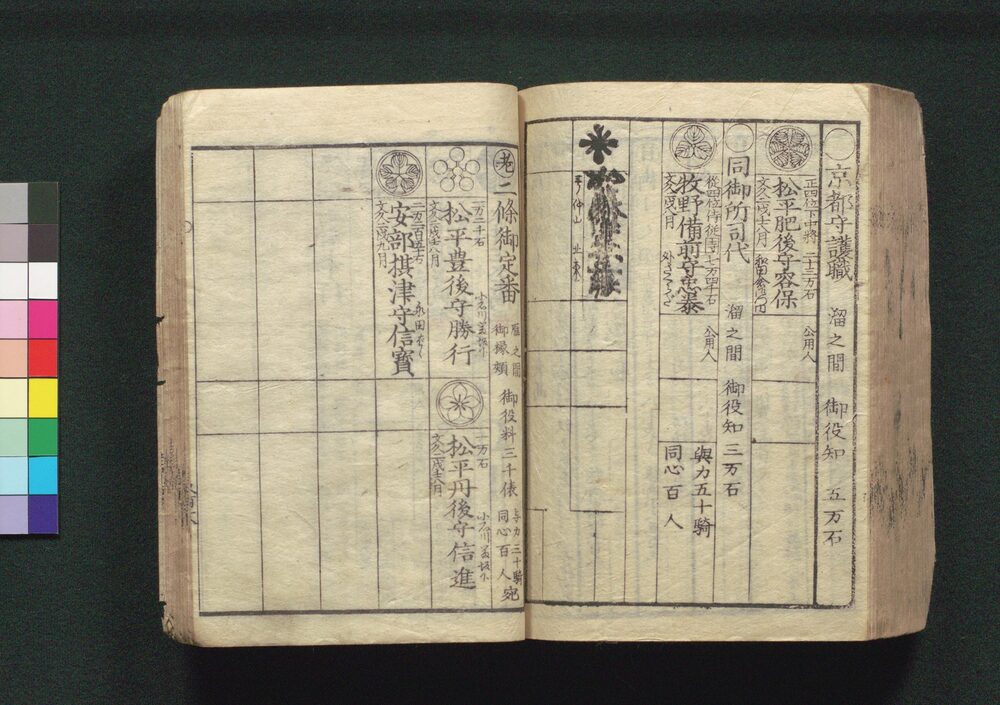 京都守護職 溜之間 御役知 五万石
正四位下中将 二十三万石
松平肥後守容保
文久二戌壬八月
公用人
同御所司代 溜之間 御役知三万石
従四位侍従 七万四千石
牧野備前守忠恭
文久二戌八月
公用人
與力五十騎
同心百人
老 二條御定番 雁之間 御縁頬 御役料三千俵 与力三十騎 同心百人宛
一万二千石
松平豊後守勝行
文久二戌壬八月
一万石
松平丹後守信進
文久二戌壬八月
二万二百五十石
安部摂津守信寶
九月